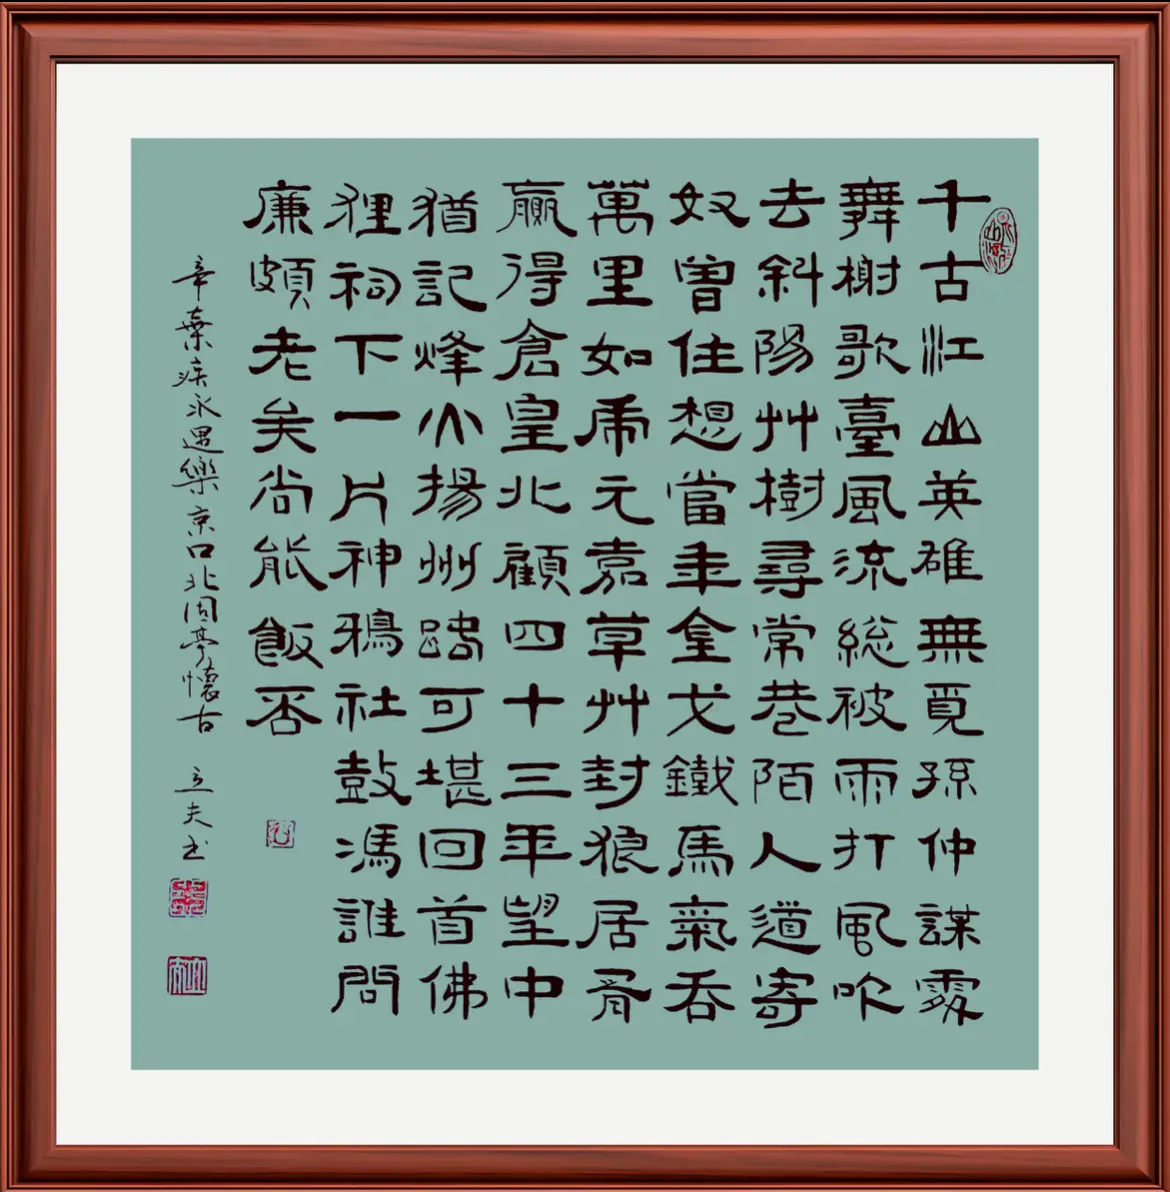 千古江山英雄無覓孫仲謀處
舞榭歌臺風流総被雨打風吹
去斜陽艸樹尋常巷陌人道寄
奴曾住想當年金戈鐵馬氣吞
萬里如虎元嘉草艸封狼居胥
贏得倉皇北顧四十三年望中
猶記烽火揚州路可堪回首佛
狸祠下一片神鴉社鼓馮誰問
廉頗老矣尚能飯否
辛棄疾永遇樂京口北固亭懷古 立夫书